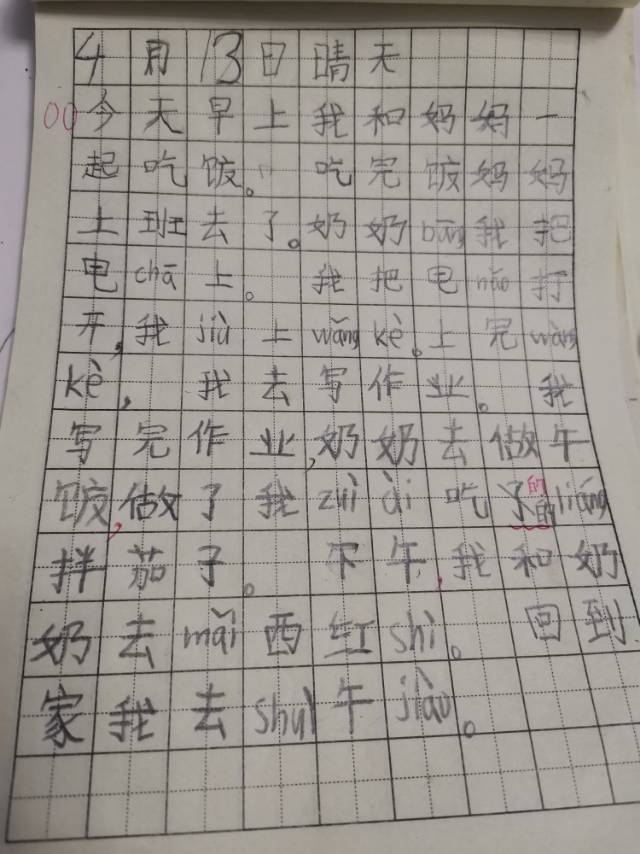 4月13日晴天
今天早上我和妈妈一
起吃饭。吃完饭妈妈
上班去了。奶奶bāng我把
电chā上。我把电nǎo打
开,我jiù上wǎngkè。上完wǎng
kè,我去写作业。我
写完作业,奶奶去做午
饭,做了我zuì ài吃的liáng
拌茄子。下午,我和奶
奶去mǎi西红shì。回到
家我去shuì午jiào。